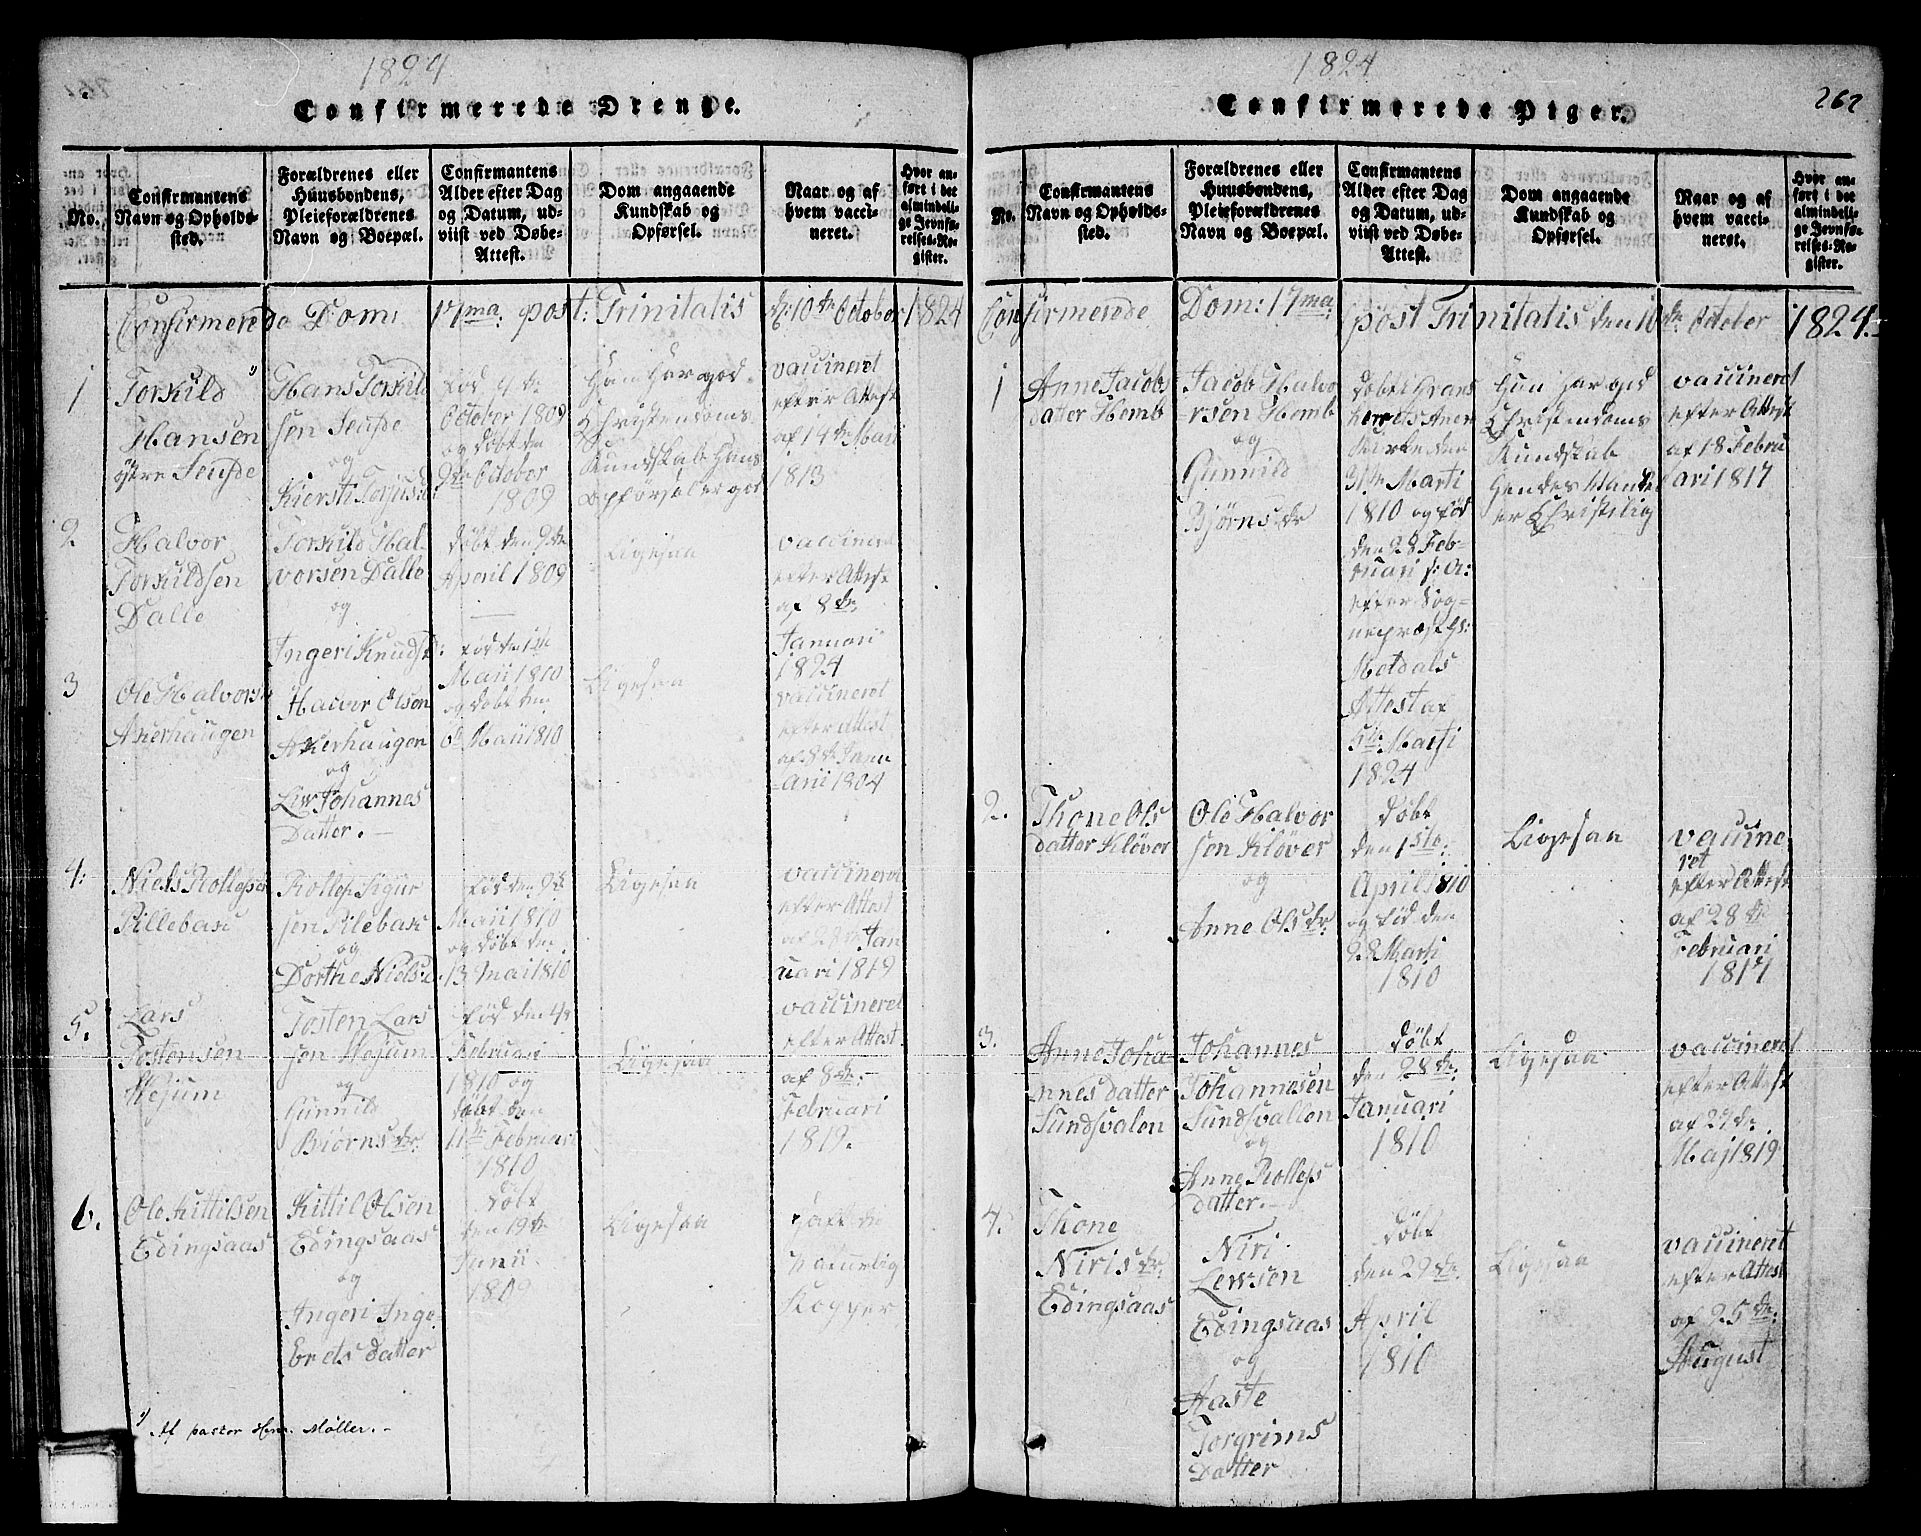 1824
Confirmerede Drenge.
No.
Confirmantens
Navn og Opholds-
sted.
Forældrenes eller
Huusbondens,
Pleieforældrenes
Navn og Boepæl.
Confirmantens
Alder efter Dag
og Datum, ud-
viist ved Døbe-
Attest.
Dom angaaende
Kundskab og
Opførsel.
Naar og af
hvem vacci-
neret.
Hvor an-
ført i det
almindeli-
ge Jevnfø-
relses-Re-
gister.
Confirmerede Dom: 17ma: post: Trinitatis d: 10de October 1824
1
Torkild
Hansen
østre
Hans Torkild
sen
og
Kiersti
Fød 4 de
October 1809
og døbt den
9de October
1809
Han har god
Christendoms
Kundskab Hans
opførsel er god
vaccineret
efter Attest
af 14de Maii
1813
2
Halvor
Torkildsen
Dalle
Torkild Hal-
vorsen Dalle
og
Ingeri Knudsd:
døbt den 9de
April 1809
Ligesaa
vaccineret
efter Attest
af 8de
Januari
1824
3
Ole Halvors
Akerhaugen
Halvor Olsen
Akerhaugen
og
Liv Johannes
Datter.
fød den 1ste
Maii 1810
og døbt den
6 Maii 1810
Ligesaa
vaccineret
efter Attest
af 8de Janu
ari 1804
4:
Niels Rollefsen
Pillebasi
Rollef Sigur
sen Pilebasi
og
Dorthe Niels:
fød den 9de
Maii 1810
og døbt den
13 Mai 1810
Ligesaa
vaccineret
efter Attest
af 28de Jan
uari 1819
5.
Lars
Tostensen
Hejum
Tosten Lars
sen Hejum
og
Gunnild
Biørnsdr.
fød den 4de
Februari
1810 og
døbt den
11de Februari
1810
Ligesaa
vaccineret
efter Attest
af 8de
Februari
1819.
6.
Ole Kittilsen
Edingsaas
Kittil Olsen
Edingsaas
og
Ingeri Inge
Brets datter
døbt
den 19de
Junii
1809
Ligesaa
haft de
naturlig
Kopper
1) Af pastor Hen. Møller.
1824
262
Confirmerede Piger.
No.
Confirmantens
Navn og Opholds-
sted.
Forældrenes eller
Huusbondens,
Pleieforældrenes
Navn og Boepæl.
Confirmantens
Alder efter Dag
og Datum, ud-
viist ved Døbe-
Attest.
Dom angaaende
Kundskab og
Opførsel.
Naar og af
hvem vacci-
neret.
Hvor an-
ført i det
almindeli-
ge Jevnfø-
relses-Re-
gister.
Confirmerede Dom: 17ma: post Trinitatis den 10de October 1824.
1
Anne Jacobs
datter Hemb
Jacob Halvo
rsen Hemb
og
Gunnild
Bjørnsdr
døbt i Grans
Kirke den
31te Marti
1810 og fød
den 28 Feb-
ruari s: a:
efter Sog-
nepræst Hr:
Motdals
Attest af
5te Marti
1824
Hun har god
Christendoms
Kundskab
Hendes Vandel
er Christelig
vaccineret
efter Attest
af 18 Febru
ari 1817
2.
Thone Ols
datter Kløver
Ole Halvor
sen Kløver
og
Anne Olsdr.
døbt
den 1ste
April 1810
og fød den
28 Marti
1810
Ligesaa
vaccine
ret
efter Attest
af 28de
Februari
1817
3.
Anne Joha
nnes datter
Sundsvalen
Johannes
Johannesen
Sundsvallen
og
Anne Rollefs
datter.
døbt
den 28de
Januari
1810
Ligesaa
vaccineret
efter Attest
af 27de
Maj 1819
4.
Thone
Niris dr.
Edingsaas
Niri
Lewsen
Edingsaas
og
Aaste
Torgrims
Datter
døbt
den 29de
April
1810
Ligesaa
vaccineret
efter Attest
af 25de
August